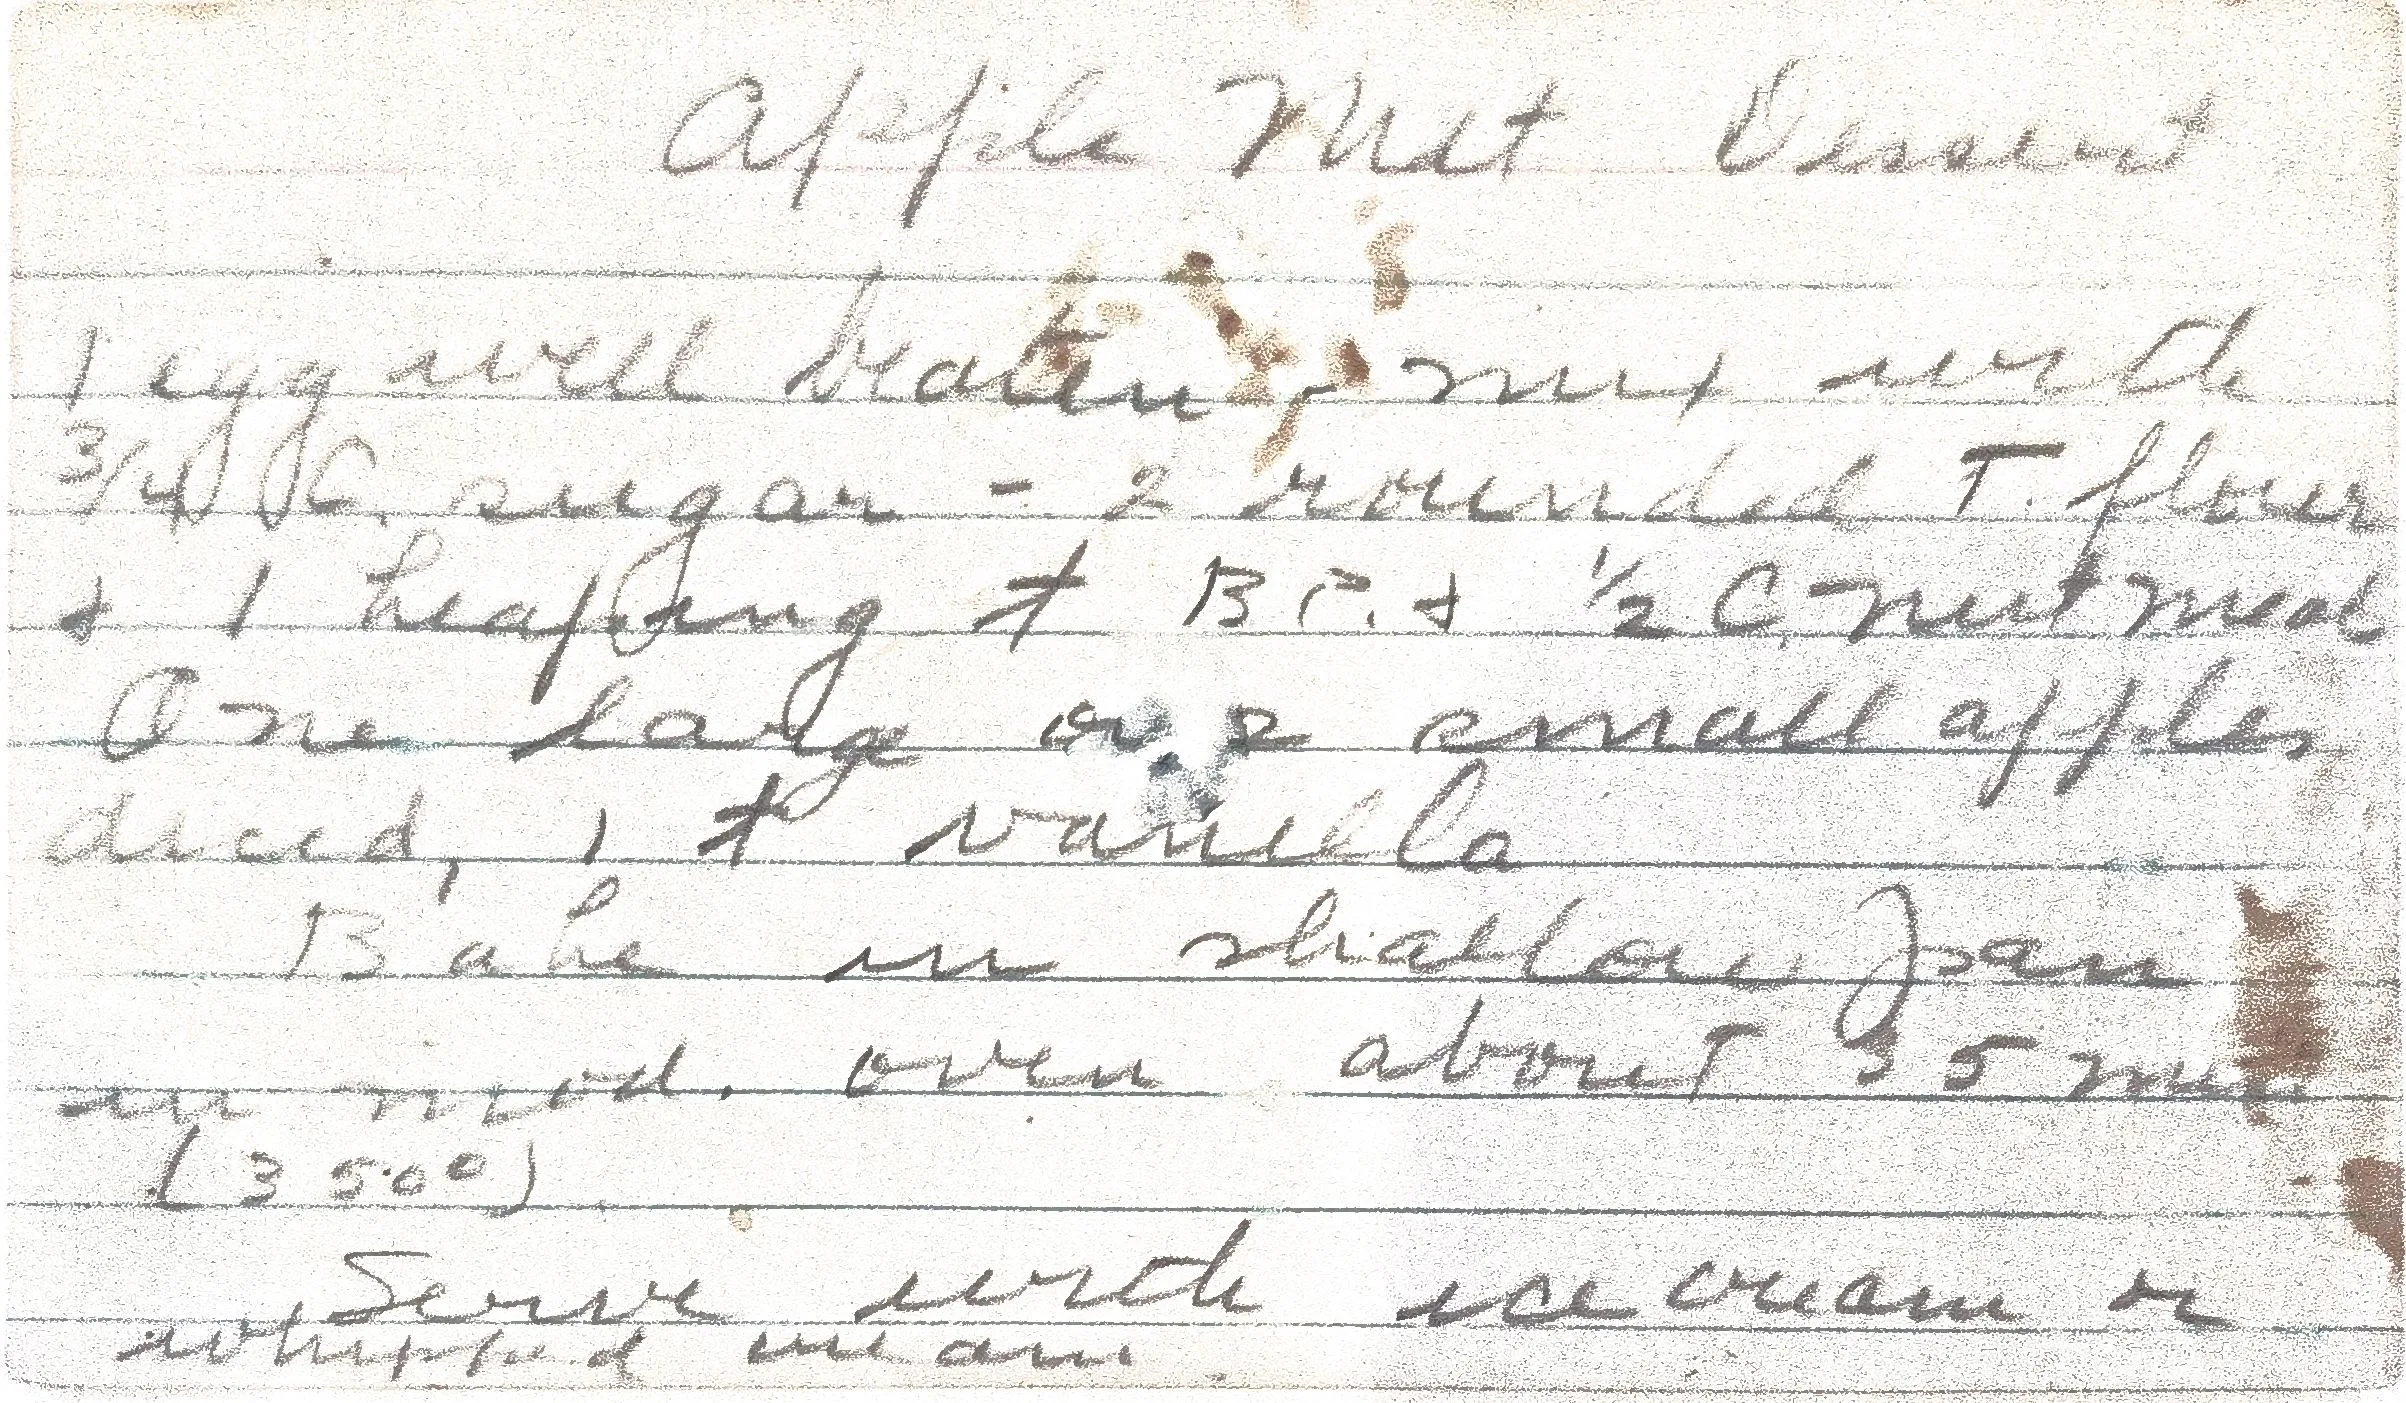 Apple Nut Dessert
1 egg well beaten, mix with
3/4 C. sugar - 2 rounded T. flour
+ 1 heaping t B P. + 1/2 C. nut meat
One large or 2 small apples
diced, 1 t vanilla
Bake in shallow pan
in mod. oven about 35 min
(350°)
Serve with ice cream or
whipped cream